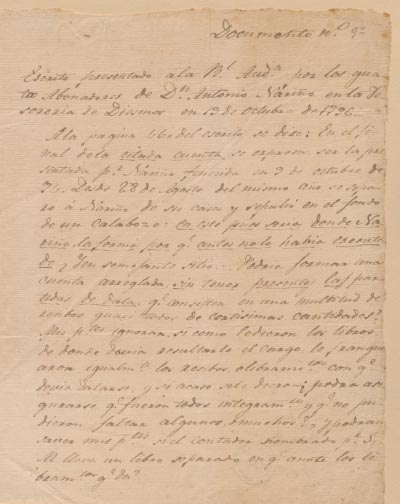 Documento n.º 9º
Escrito presentado a la Rl. Auda. por los qua-
tro Abonadores de Dn. Antonio Nariño en la Te-
soreria de Diesmos en 13 de Octubre de 1796
A la pagina 46 del escrito se dice: En el fi-
nal de la citada cuenta, se expresa ser la pre-
sentada pr. Nariño fincida en 3 de octubre de
94. Desde 28 de Agosto del mismo año se sepa-
ró á Nariño de su casa y sepultó en el fondo
de un calabozo: en este pues seria donde Na-
riño la formó, por q. antes no la habia
de, y en semejante sitio... Podria formar una
cuenta arreglada, sin tener presentes las par-
tidas de data, q. consisten en una multitud de
recibos quasi todos de cortisimas cantidades?
Mis ptes. ignoran, si como le dieron los libros
de donde devia resultarle el cargo, le franque-
aron igualmte. los recibos, olibramtos. con q.
devia datarse, y si acaso se le dieron ¿podra ase-
gurarse q. fueron todos integramte. y q. no pu-
dieron faltar algunos, ó muchos? ¿y podran
saver mis ptes. si el contador nombrado pr. S.
M. lleva un libro separado en q. anote los li-
bramtos. q. da?